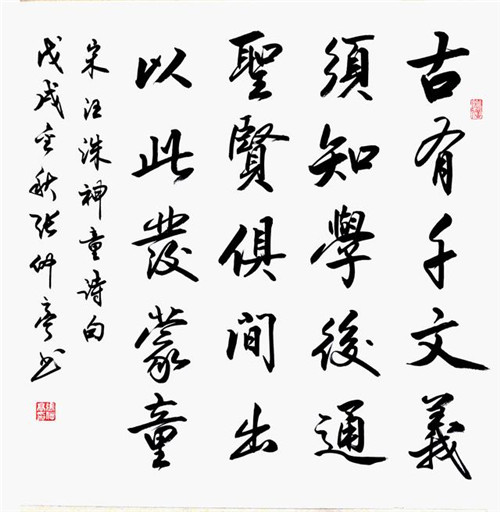 古有千文義
須知學後通
聖賢俱間出
以此發蒙童
宋汪洙神童诗句
戊戌金秋张仲亭书